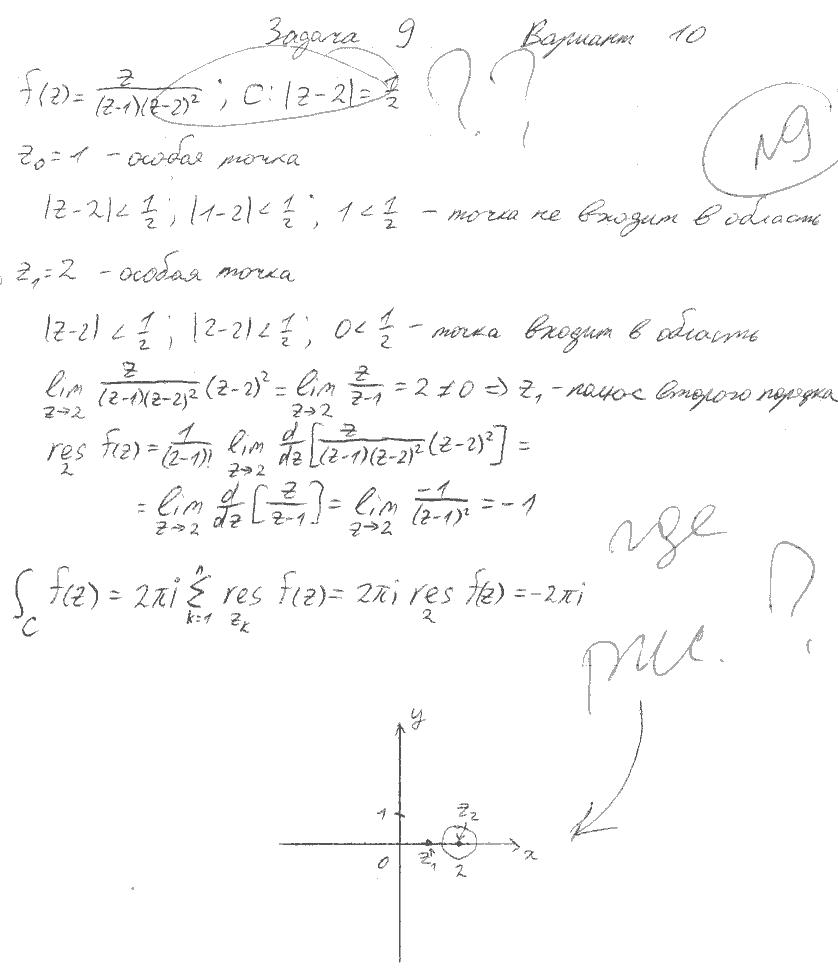 Задача 9 Вариант 10
f(z)=z/((z-1)(z-2)²); C: |z-2|=1/2 ??
№9
z₀=1 - особая точка
|z-2|<1/2; |1-2|<1/2; 1<1/2 - точка не входит в область
z₁=2 - особая точка
|z-2|<1/2; |2-2|<1/2; 0<1/2 - точка входит в область
lim z→2 z/((z-1)(z-2)²) (z-2)² = lim z→2 z/(z-1) = 2≠0 => z₁ - полюс второго порядка
res 2 f(z)=1/(2-1)! lim z→2 d/dz [z/((z-1)(z-2)²) (z-2)²] =
= lim z→2 d/dz [z/(z-1)] = lim z→2 -1/(z-1)² = -1
где
∫C f(z) = 2πi Σ k=1 n res zₖ f(z) = 2πi res 2 f(z) = -2πi
рис. ?
y
1 z₂
0 z₁ 2 x